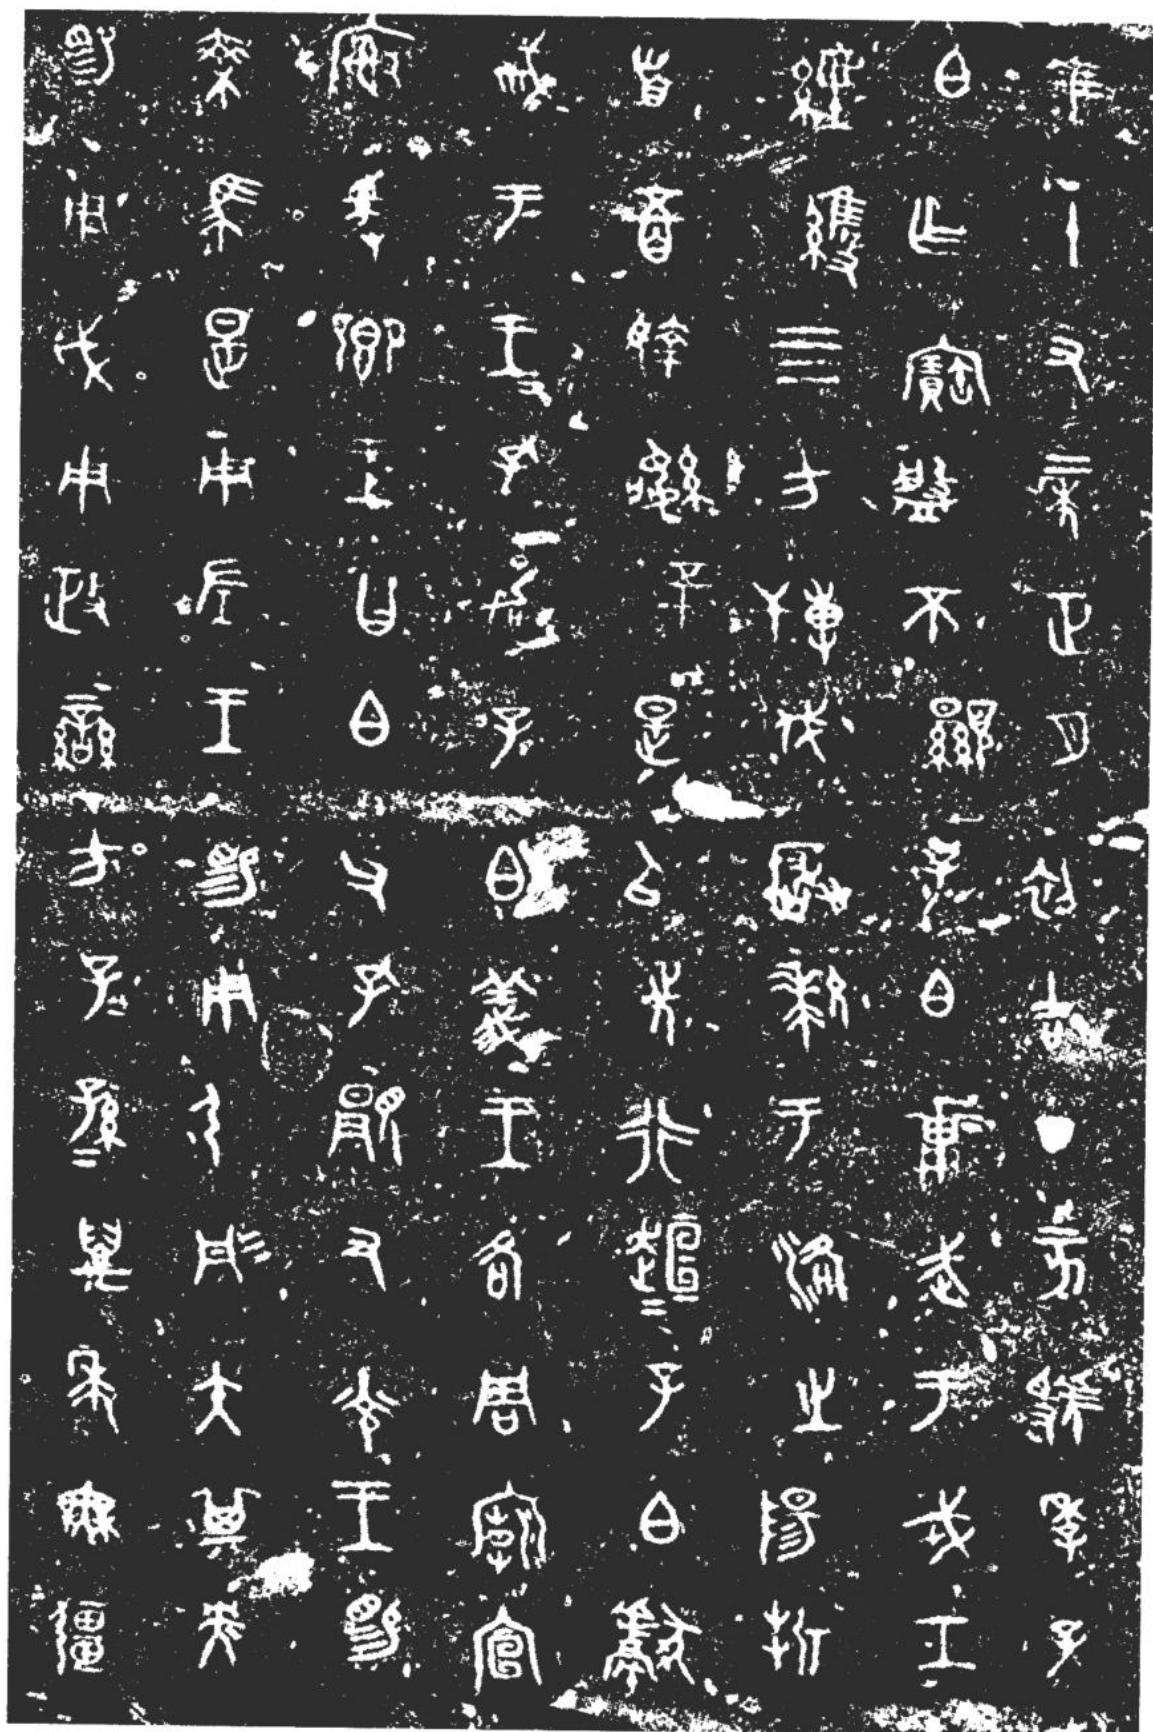 隹十又二年正月初吉丁亥虢季子
白乍寶盤不顯子白𤕌武于戎工
經維四方搏伐玁狁于洛之陽折
首五百執訊五十是以先行桓=子白獻
聝于王王孔加子白義王各周廟宣
廟爰鄉王曰白父孔顯又光王賜
乘馬是用左王賜用弓彤矢其央
賜用戉用政蠻方子=孫=萬年無疆